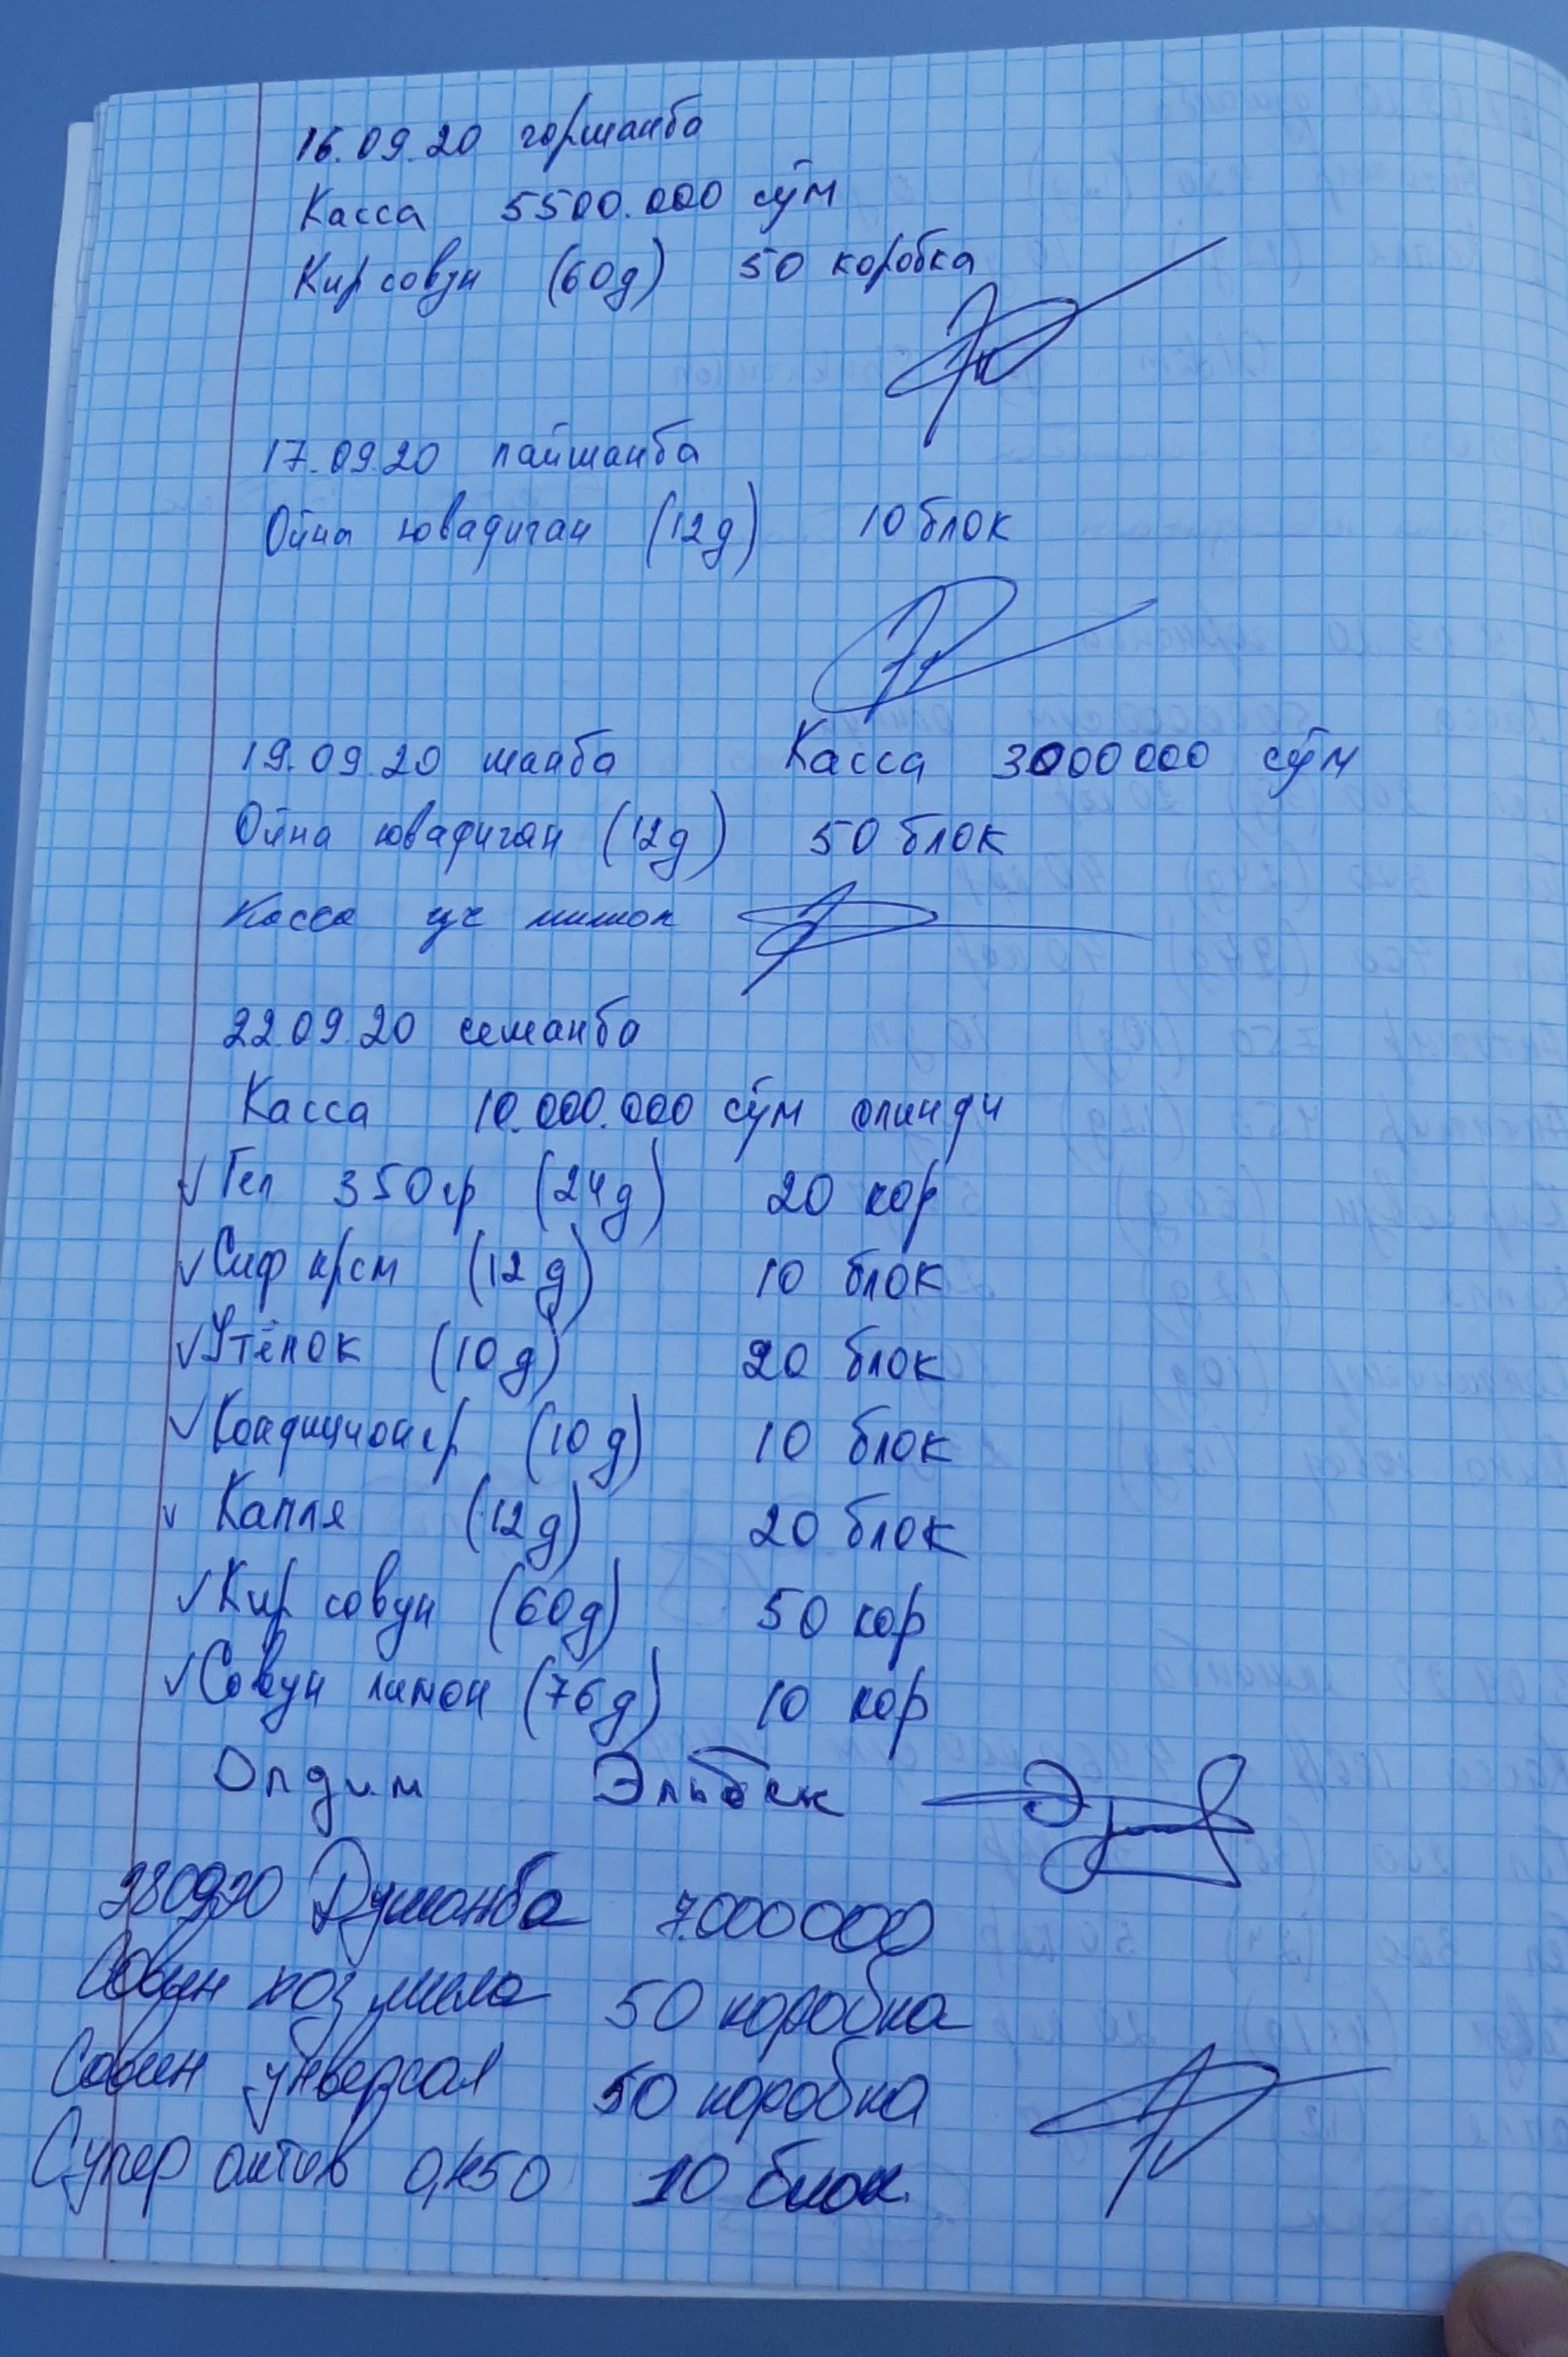 16.09.20 чоршанба
Касса 5500.000 сўм
Кир совун (60д) 50 коробка
17.09.20 пайшанба
Ойна ювадиган (12д) 10 блок
19.09.20 шанба Касса 3000000 сўм
Ойна ювадиган (12д) 50 блок
Касса уч милион
22.09.20 сешанба
Касса 10.000.000 сўм олинди
✓ Гел 350гр (24д) 20 кор
✓ Сиф крем (12д) 10 блок
✓ Утёнок (10д) 20 блок
✓ Кондиционер (10д) 10 блок
✓ Капля (12д) 20 блок
✓ Кир совун (60д) 50 кор
✓ Совун лимон (76д) 10 кор
Олдим Эльбек
280920 Душанба 7.000000
Совун хоз мила 50 коробка
Совун унверсал 50 коробка
Супер актив 0,450 10 блок.